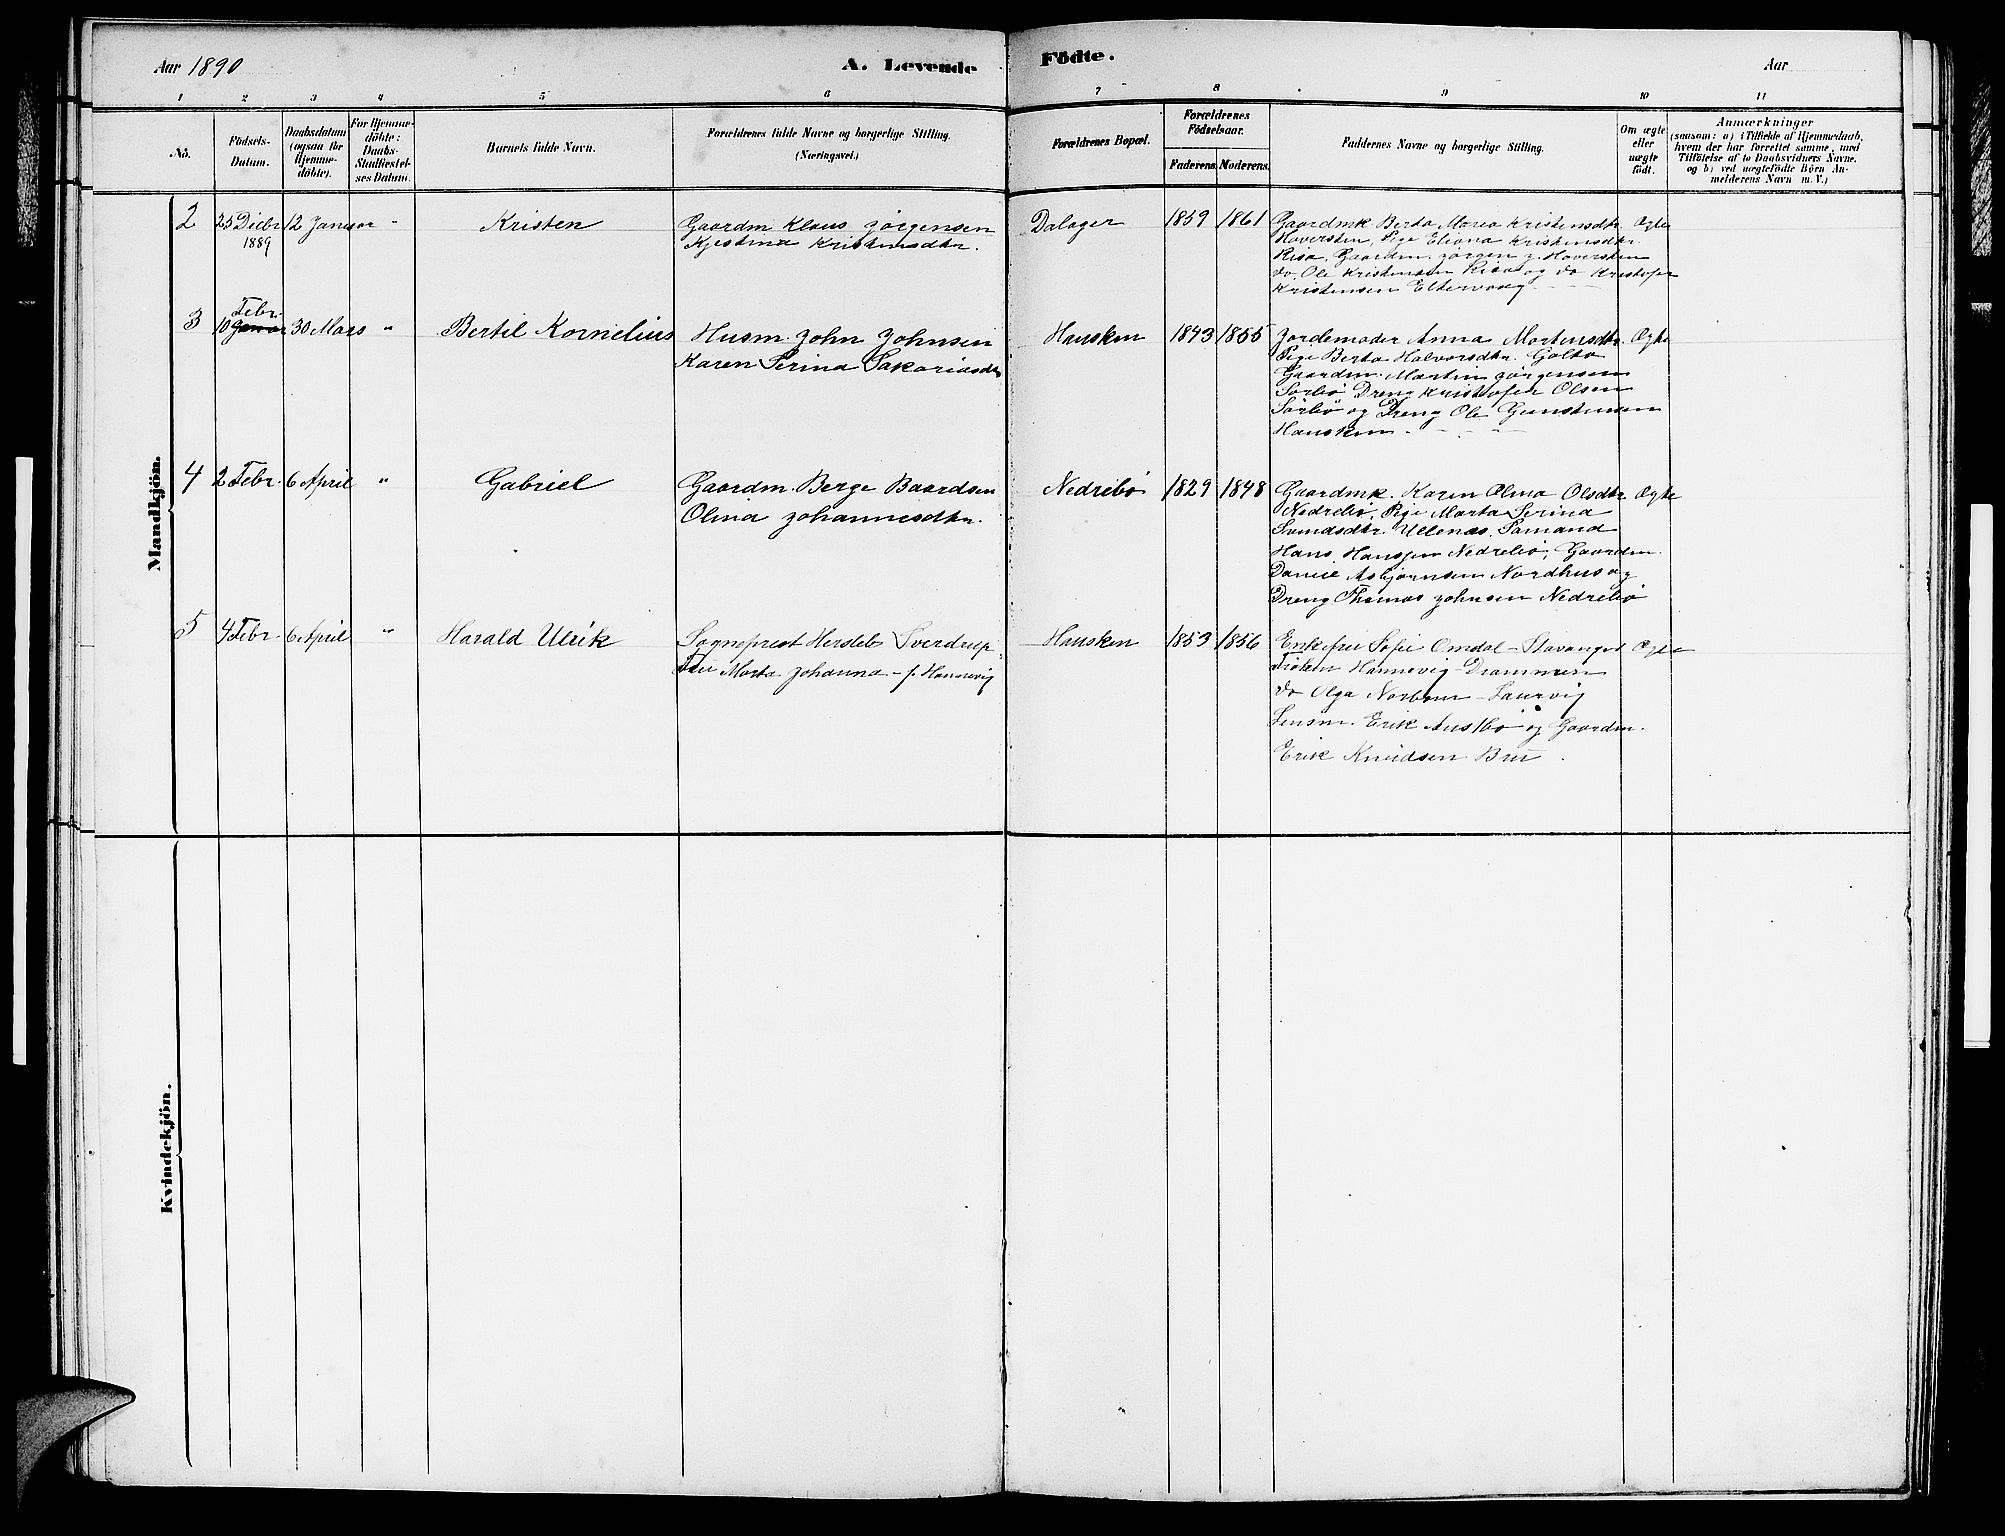 Aar 1890
A. Levende
Födte.
Aar
1 2 3 4 5 6
7 8 9 10 11
No.
Födsels-
Datum.
Daabsdatum
(ogsaa for
Hjemme-
döbte).
For Hjemme-
döbte:
Daabs-
Stadfæstel-
ses Datum.
Barnets fulde Navn.
Forældrenes fulde Navne og borgerlige Stilling.
(Næringsvei.)
Forældrenes Bopæl.
Forældrenes
Födselsaar.
Faderens.
Moderens.
Faddernes Navne og borgerlige Stilling.
Om ægte
eller
uægte
födt.
Anmærkninger
(saasom: a) i Tilfælde af Hjemmedaab,
hvem der har forrettet samme, med
Tilföielse af to Daabsvidners Navne.
og b) ved uægtefödte Börn An-
melderens Navn m. V.)
Mandkjön.
2
25 Decbr
1889
12 Januar
"
Kristen
Gaardm Klaus Jörgensen
Kjestina Kristensdtr.
Dalager
1859
1861
Gaardmk Berta Maria Kristensdtr
Hoversten, Pige Eliana Kristensdtr
Risa, Gaardm. Jörgen J. Hoversten
do Ole Kristensen Risa og do Kristofer
Kristensen Eltervaag
Ægte
3
Febr.
10 Januar
30 Mars
"
Bertil Kornelius
Husm. John Johnsen
Karen Serina Sakariasdtr
Hausken
1843
1855
Jordemoder Anna Mortensdtr.
Pige Berta Halvorsdtr. Galta
Gaardm. Martin Jörgensen
Sörbö Dreng Kristofer Olsen
Sörbö og Dreng Ole Gunstensen
Hausken
Ægte
4
2 Febr.
6 April
"
Gabriel
Gaardm. Berge Baardsen
Olina Johannesdtr.
Nedrebö
1829
1848
Gaardmk. Karen Olina Olsdtr
Nedrebö, Pige Marta Serina
Svendsdtr. Ullenæs,
Hans Hansen Nedrebö, Gaardm.
Daniel Asbjörnsen Nordhus og
Dreng Thomas Johnsen Nedrebö
Ægte
5
4 Febr.
6 April
"
Harald Ulrik
Sogneprest Hersleb Sverdrup
Fru Marta Johanna - f. Hannevig
Hausken
1853
1856
Enkefru Sofie Omdal - Stavanger
Fröken Hannevig - Drammen
do Olga Norbom - Laurvig
Lensm. Erik Austbö og Gaardm.
Erik Knudsen Bru
Ægte
Kvindekjön.